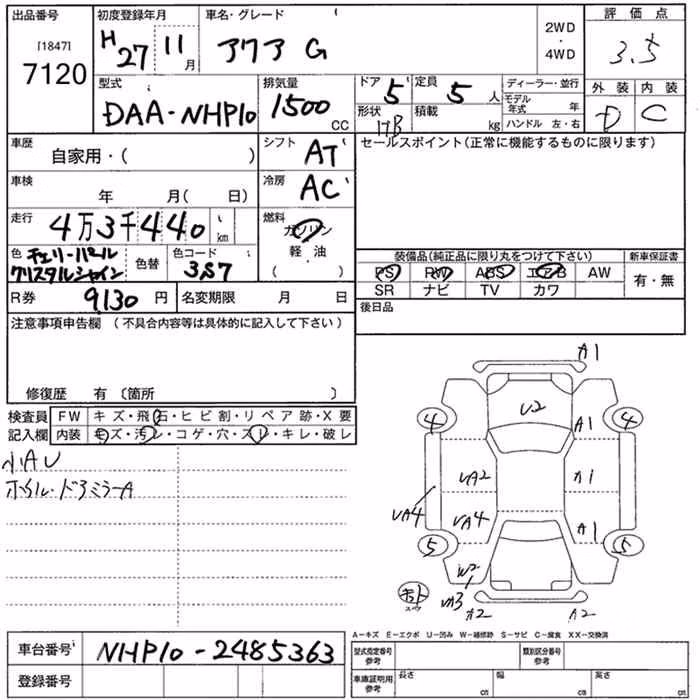 出品番号
[1847]
7120
初度登録年月
H 27 11 月
車名・グレード
アクア G
2WD
・
4WD
評価点
3.5
外装 内装
D C
型式
DAA-NHP10
排気量
1500 CC
ドア 5
定員 5 人
形状 HB
積載 kg
ディーラー・並行
モデル年式 年
ハンドル 左・右
車歴
自家用・( )
シフト AT
車検
年 月( 日)
冷房 AC
走行
4万3千440 km
燃料
ガソリン
軽・油
( )
色 チェリーパール
クリスタルシャイン
色替
色コード
3S7
R券 9130 円
名変期限 月 日
セールスポイント(正常に機能するものに限ります)
装備品(純正品に限り丸をつけて下さい)
PS PW ABS エアB AW
SR ナビ TV カワ
新車保証書
有・無
後日品
注意事項申告欄 (不具合内容等は具体的に記入して下さい)
修復歴 有 (箇所 )
検査員
記入欄
FW キズ・飛石・ヒビ割・リペア跡・X要
内装 キズ・汚レ・コゲ・穴・スレ・キレ・破レ
小AU
ホイル・ドアミラーA
A1
U2
4
A1
4
UA2
A1
UA4
UA4
A1
5
5
W2
UA3
A2
A2
A-キズ E-エクボ U-凹み W-補修跡 S-サビ C-腐食 XX-交換済
車台番号 NHP10-2485363
登録番号
型式指定番号
参考
類別区分番号
参考
車庫証明用
参考
長さ cm
幅 cm
高さ cm